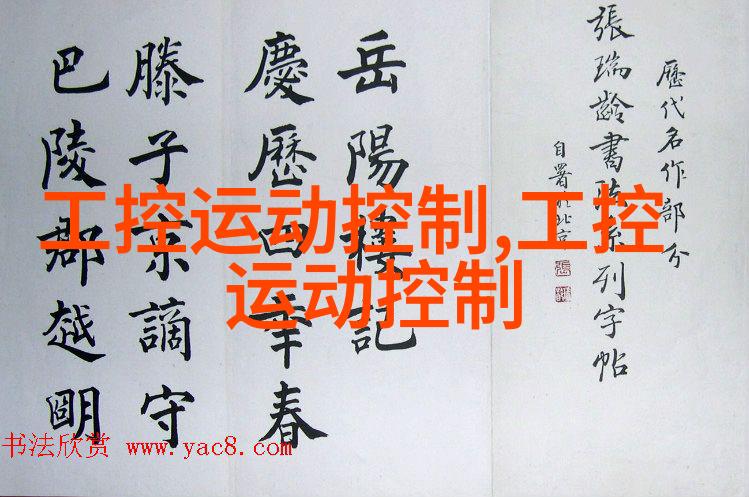 歷代名作部分
張瑞齡書法系列字帖
自署於北京
岳陽樓記
慶歷四年春
滕子京謫守
巴陵郡越朙
工控运动控制,工控
运动控制
书法欣赏 www.yac8.com